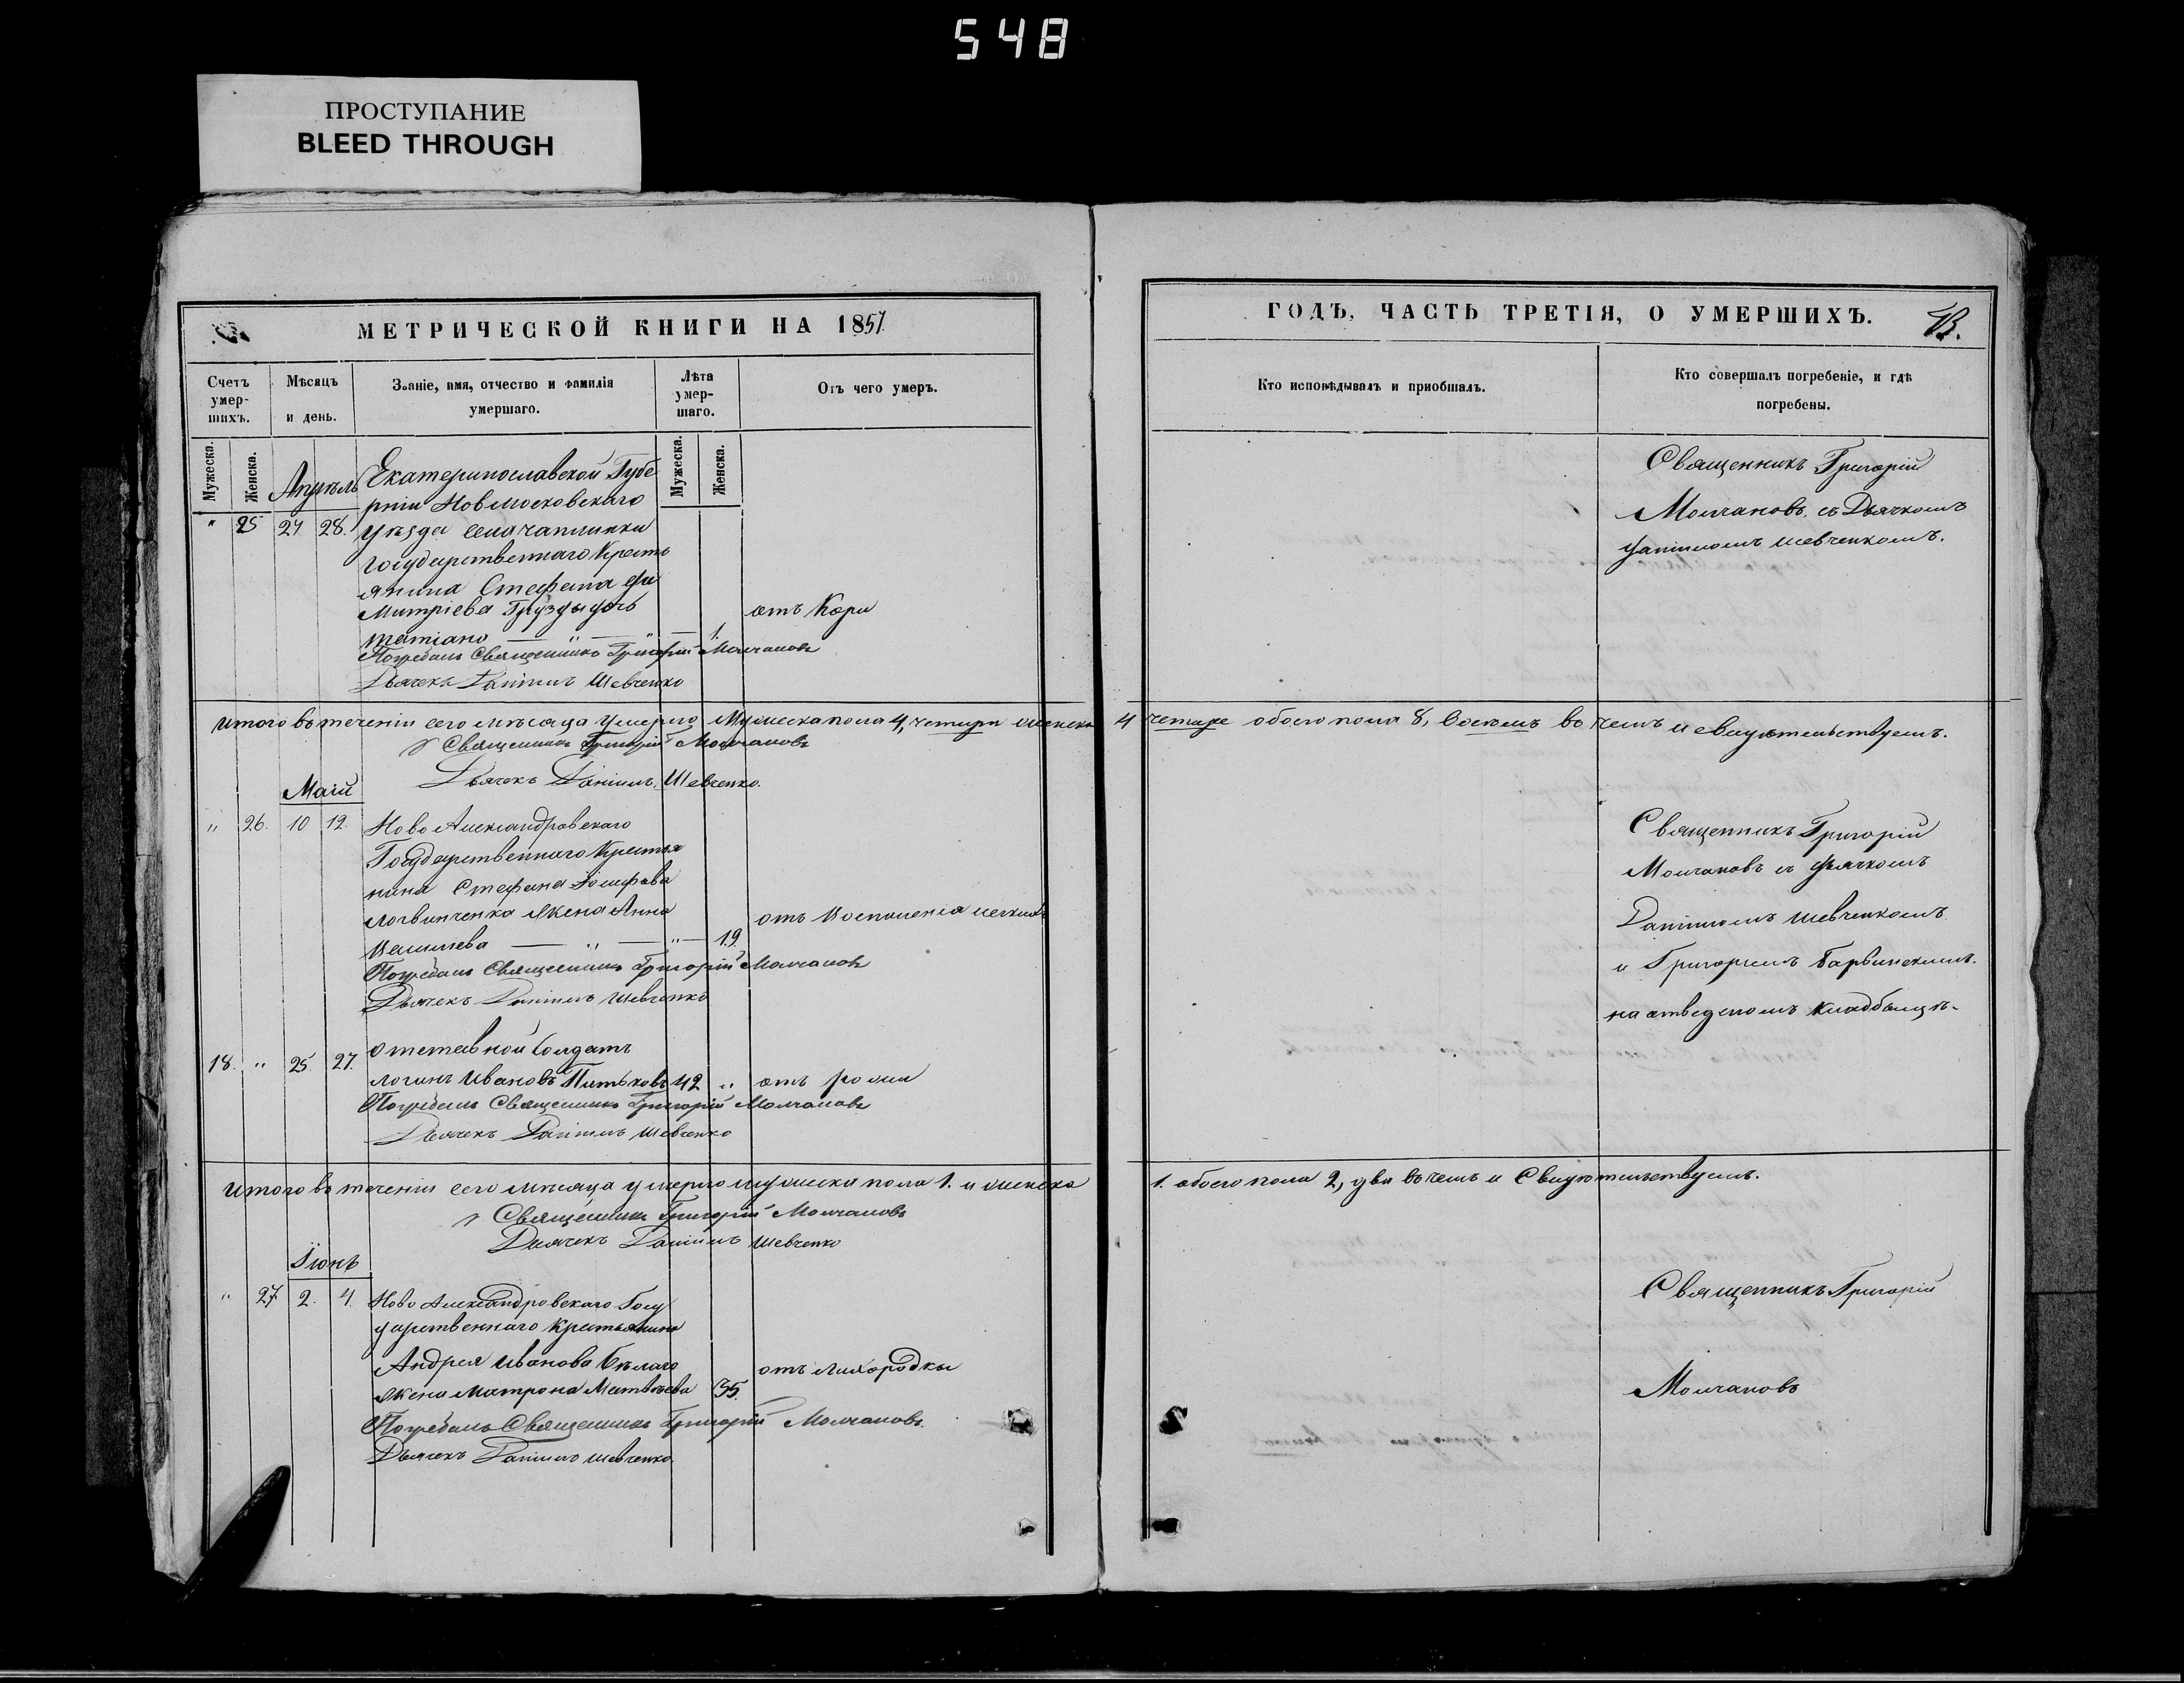 548
ПРОСТУПАНИЕ
BLEED THROUGH
МЕТРИЧЕСКОЙ КНИГИ НА 1857.
Счетъ умер-шихъ.
Мѣсяцъ и день.
Званіе, имя, отчество и фамилія умершаго.
Лѣта умер-шаго.
Отъ чего умеръ.
Мужеска.
Женска.
Мужеска.
Женска.
Апрѣль
Екатеринославской Губе
рніи Новмосковскаго
" 25 27 28. уѣзда села чаплинки
государственнаго Кресть
янина Стефана Ди
митріева Грузды дочь
отъ Кори
татіано — " — " — 1.
Погребалъ Священникъ Григорій Молчановъ
Дьячекъ Даніилъ Шевченко
Итого въ теченіи сего мѣсяца умерло Мужеска пола 4, четыри женска
Священникъ Григорій Молчановъ
Дьячекъ Даніилъ Шевченко.
Маій
" 26. 10 12. Ново Александровскаго
Государственнаго Крестья
нина Стефана Іосифова
Логвинченка жена Анна
отъ Воспаленія легкихъ
— " — " — 19.
Погребалъ Священникъ Григорій Молчановъ
Дьячекъ Даніилъ Шевченко
18. " 25. 27. отставной Солдатъ
логинъ Ивановъ 42 " отъ рожи
Погребалъ Священникъ Григорій Молчановъ
Дьячекъ Даніилъ Шевченко
Итого въ теченіи сего мѣсяца умерло мужеска пола 1. и женска
Священникъ Григорій Молчановъ
Дьячекъ Даніилъ Шевченко
Іюнь
" 27. 2. 4. Ново Александровскаго Госу
дарственнаго крестьянина
Андрея Иванова Бѣлаго
отъ лихорадки
жена Матрона Матвѣева 35.
Погребалъ Священникъ Григорій Молчановъ.
Дьячекъ Даніилъ Шевченко
ГОДЪ, ЧАСТЬ ТРЕТІЯ, О УМЕРШИХЪ.
Кто исповѣдывалъ и пріобщалъ.
Кто совершалъ погребеніе, и гдѣ погребены.
Священникъ Григорій
Молчановъ съ Дьячкомъ
Даніиломъ Шевченкомъ.
4 четыре обоего пола 8, Восемъ въ чемъ и свидѣтельствуемъ.
Священникъ Григорій
Молчановъ съ дьячкомъ
Даніиломъ Шевченкомъ
и Григоріемъ Барвинскимъ.
на отведеномъ кладбыщѣ.
1. обоего пола 2, два въ чемъ и Свидѣтельствуемъ.
Священникъ Григорій
Молчановъ